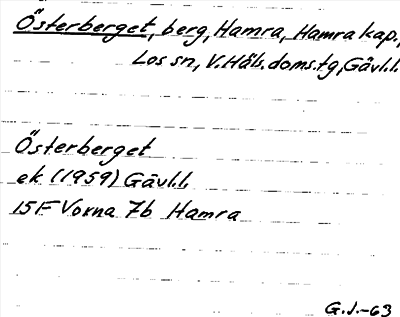 Österberget, berg, Hamra, Hamra kap.,
Los sn, V. Häls. doms. tg, Gävl.l.
Österberget
ek (1959) Gävl.l.
15F Voxna 7b Hamra
G.J.-63